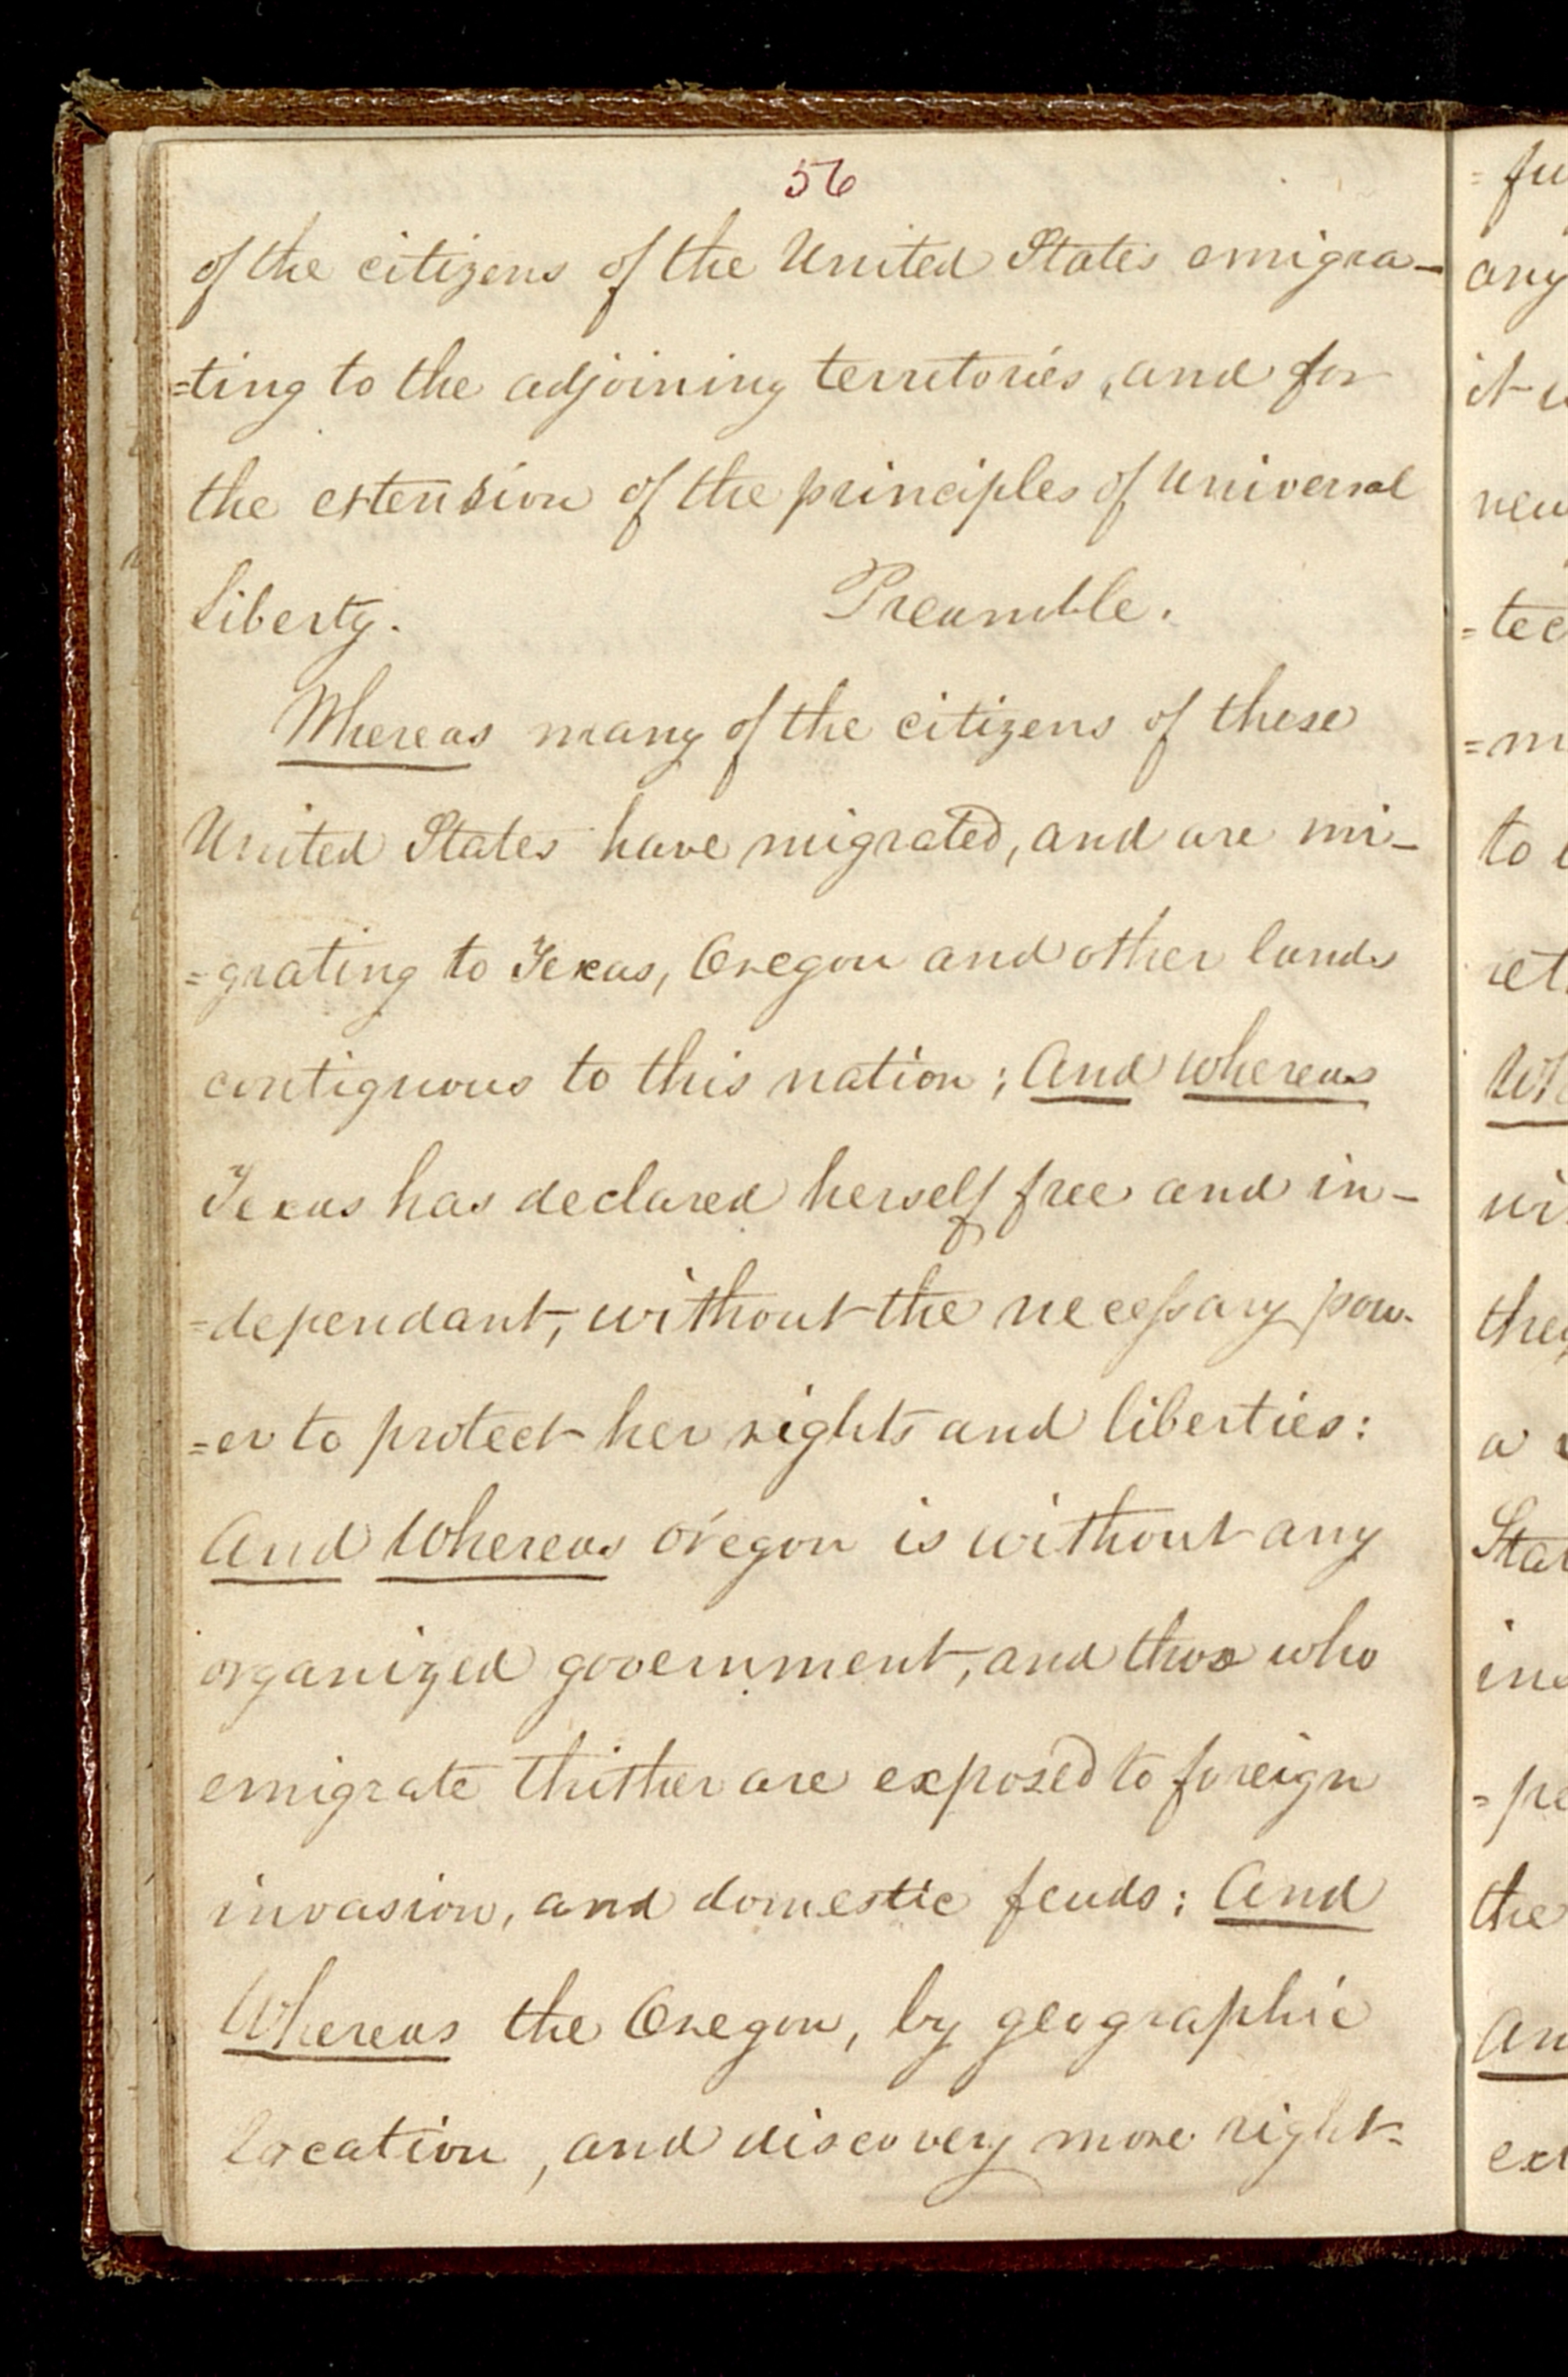 56
of the citizens of the United States emigra-
=ting to the adjoining territories, and for
the extension of the principles of universal
Liberty. Preamble.
Whereas many of the citizens of these
United States have migrated, and are mi-
=grating to Texas, Oregon and other lands
contiguous to this nation; And whereas
Texas has declared herself free and in-
=dependant, without the necessary pow-
=er to protect her rights and liberties:
And Whereas oregon is without any
organized government, and those who
emigrate thither are exposed to foreign
invasion, and domestic feuds: And
Whereas the Oregon, by geographic
location, and discovery more right-
=fu
any
it
new
=tec
=m
to
ret
Wh
wi
they
a
Stat
ind
=pe
the
An
ext